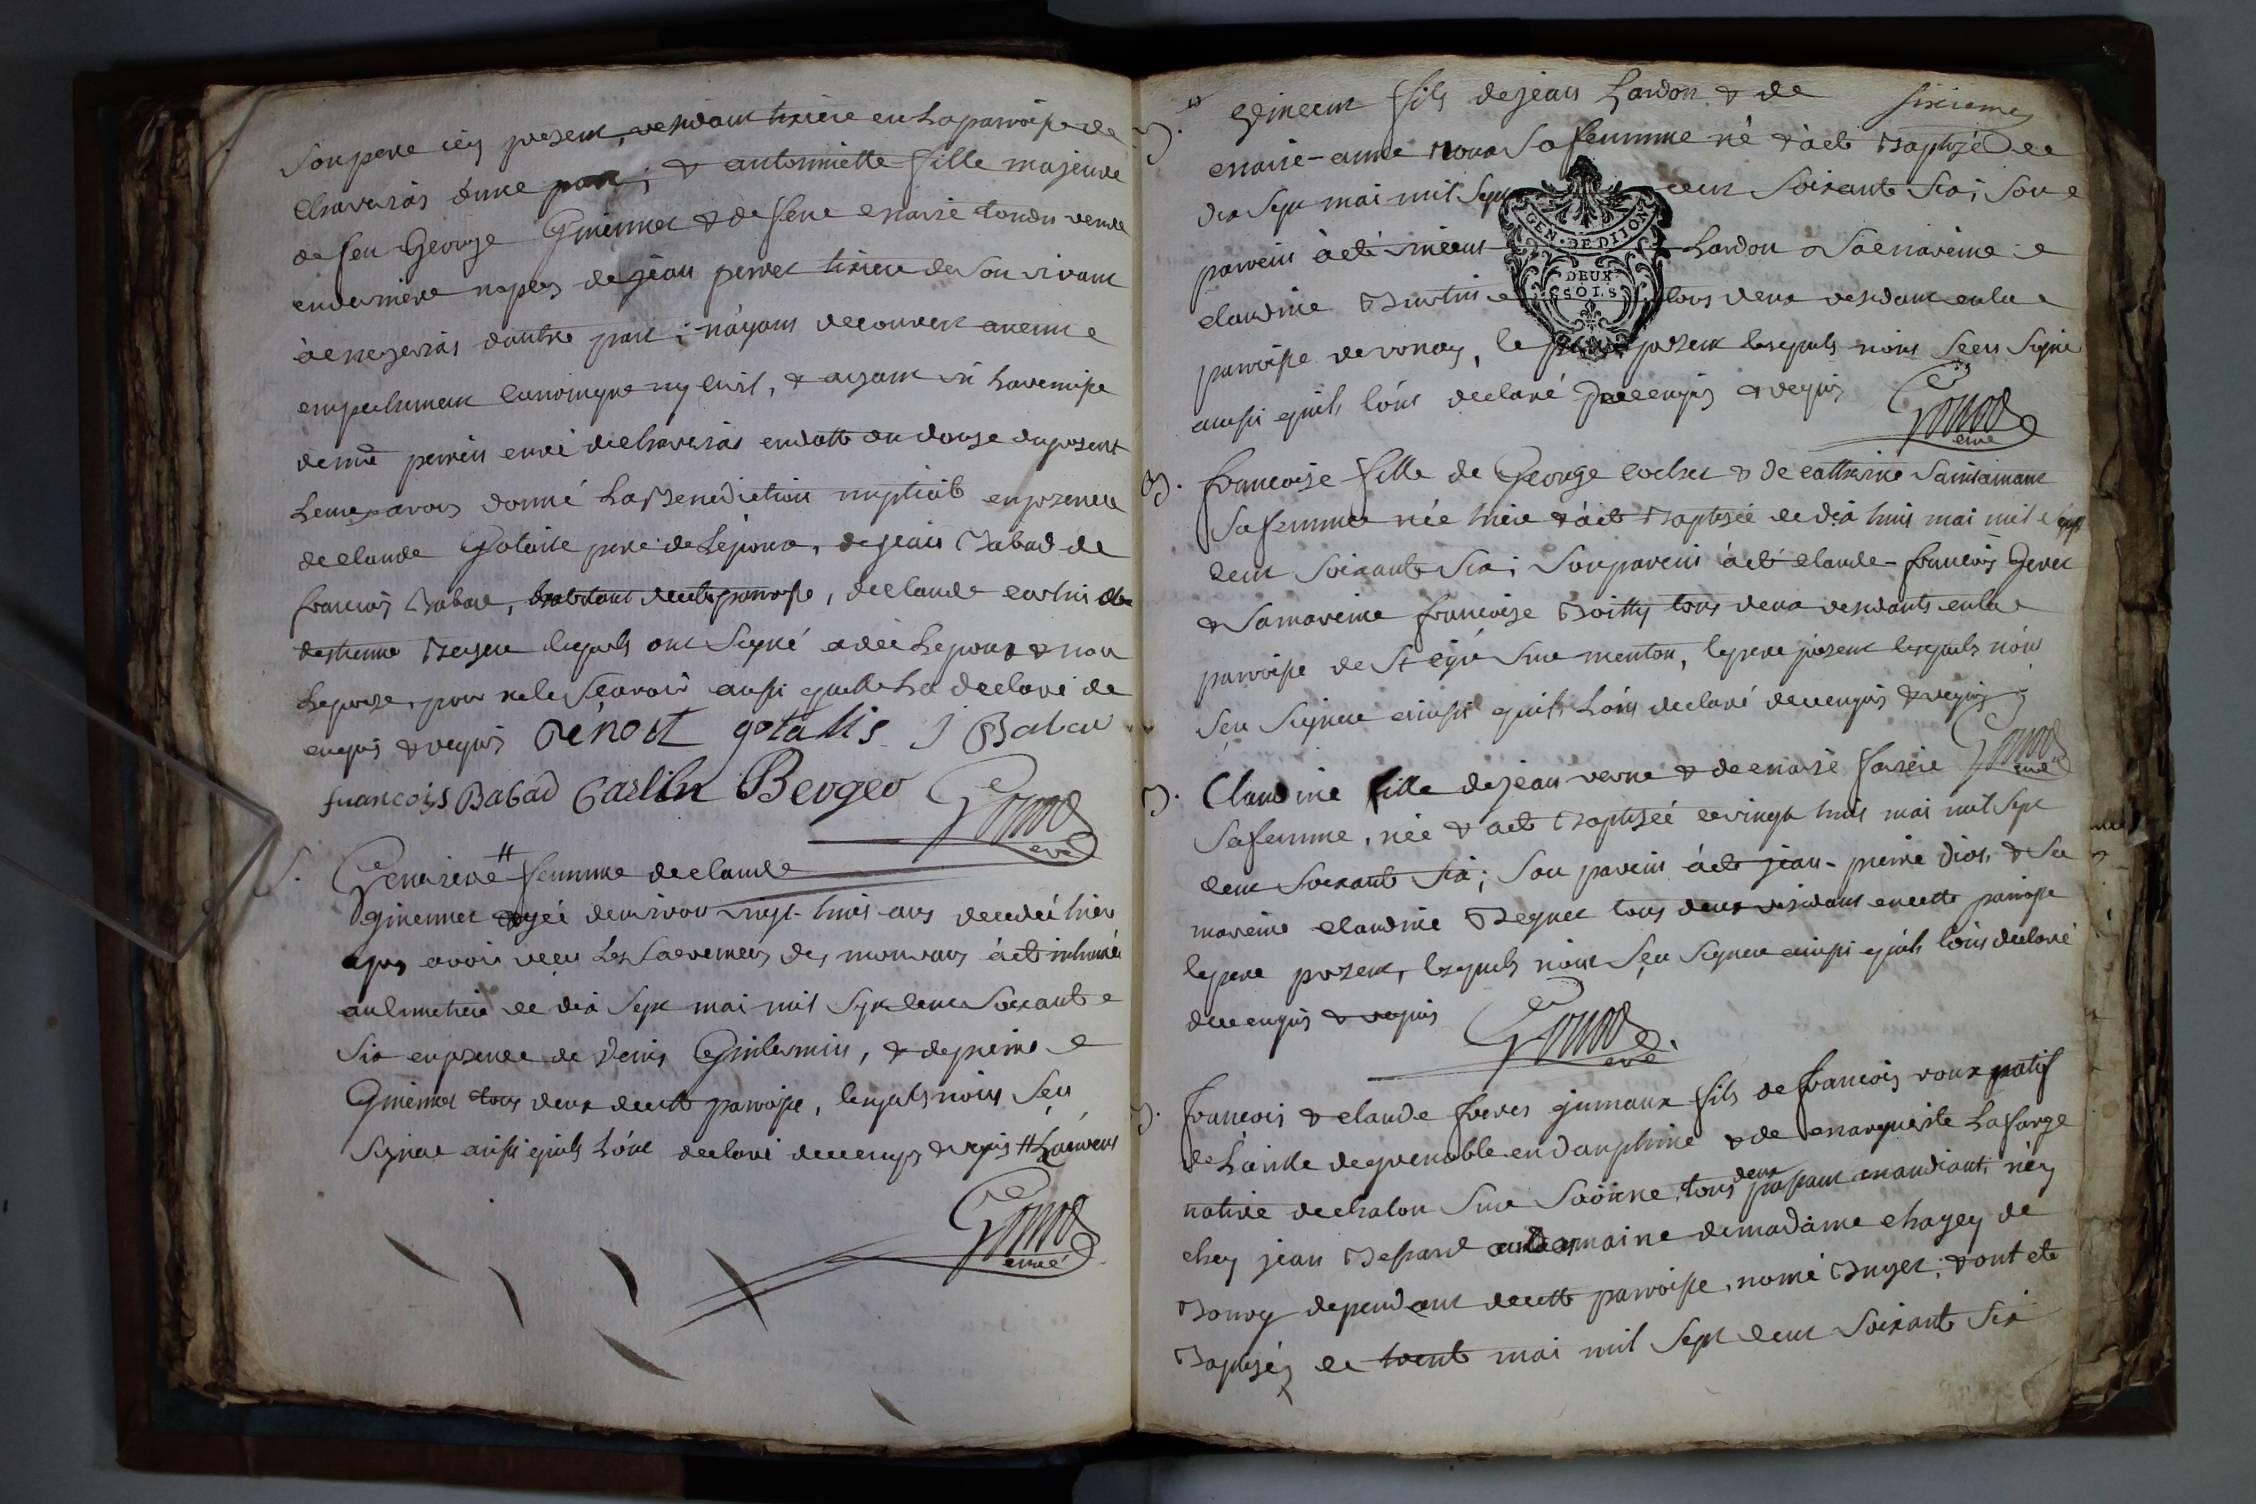 son pere icy present, residant tixier en la paroisse de
chaveiria d'une part; & antoiniette fille majeure
de feu George Guienner & de feue marie tondu veuve
en derniere nopces de jean perret tixier de son vivant
à d'autre part; n'ayant decouvert aucune
empechement canonique ny civil, & ayant vu la remise
de mr perrin curé de chaveiria en datte du douze du present
Leur avons donné La Benediction nuptiale en presence
de claude gotalle pere de L'epoux, de jean Babad de
francois Babad, habitant de cette paroisse, de claude carlin &
d'etienne Berger lequels ont signé avec Lepoux & non
Lepouse, pour ne le scavoir ainsi quelle La declaré de
enquis & requis Benoit gotallis J Babad
francois Babad Carlin Berger Gonod
curé
Genereuse # femme de claude
guienner agée d'environ vingt-huit ans decedée hier
apres avoir recu Les Sacremens des mourans à eté inhumée
au cimetiere le dix sept mai mil sept cent soixante
six en presence de Denis Guillermin, & de pierre
Guienner tous deux de cette paroisse, lequels n'ont sçu
signer ainsi quils L'ont declaré de ce enquis & requis # Laurent
Gonod
curé
sixieme
Vincent fils de jean Lardon & de
marie-anne sa femme né & à eté Baptisé le
dix sept mai mil sept cent soixante six; son
parrein à eté vincent Lardon & sa mareine
claudine tous deux residant en la
paroisse de vonas, le pere present lesquels n'ont sceu signer
ainsi quils l'ont declaré de ce enquis & requis Gonod
curé
francoise fille de George cochet & de catherine Saintamant
sa femme née hier & à eté Baptisée le dix huit mai mil sept
cent soixante six; son parein à eté claude-francois Geret
& sa mareine francoise Boitty tous deux residants en la
paroisse de St Cyr sur menton, le pere present lesquels n'ont
sçu signer ainsi quils L'ont declaré de ce enquis & requis
Gonod
curé
Claudine fille de jean verne & de marie
sa femme, née & à eté Baptisée le vingt huit mai mil sept
cent soixante six; son parein à eté jean-pierre dios, & sa
mareine claudine Beguet tous deux residans en cette paroisse
le pere present, lesquels n'ont sçu signer ainsi quils l'ont declaré
de ce enquis & requis Gonod
curé
francois & claude freres gumaux fils de francois roux natif
de La ville de grenoble en dauphiné & de marguerite Lafarge
native de chalon sur saône, tous deux passant mandiant, nés
chez jean Bessard au domaine de madame chagey de
Bourg dependant de cette paroisse, nomé Buyet; & ont eté
Baptisés le trente mai mil sept cent soixante six
GEN. DE DIJON
DEUX
SOLS